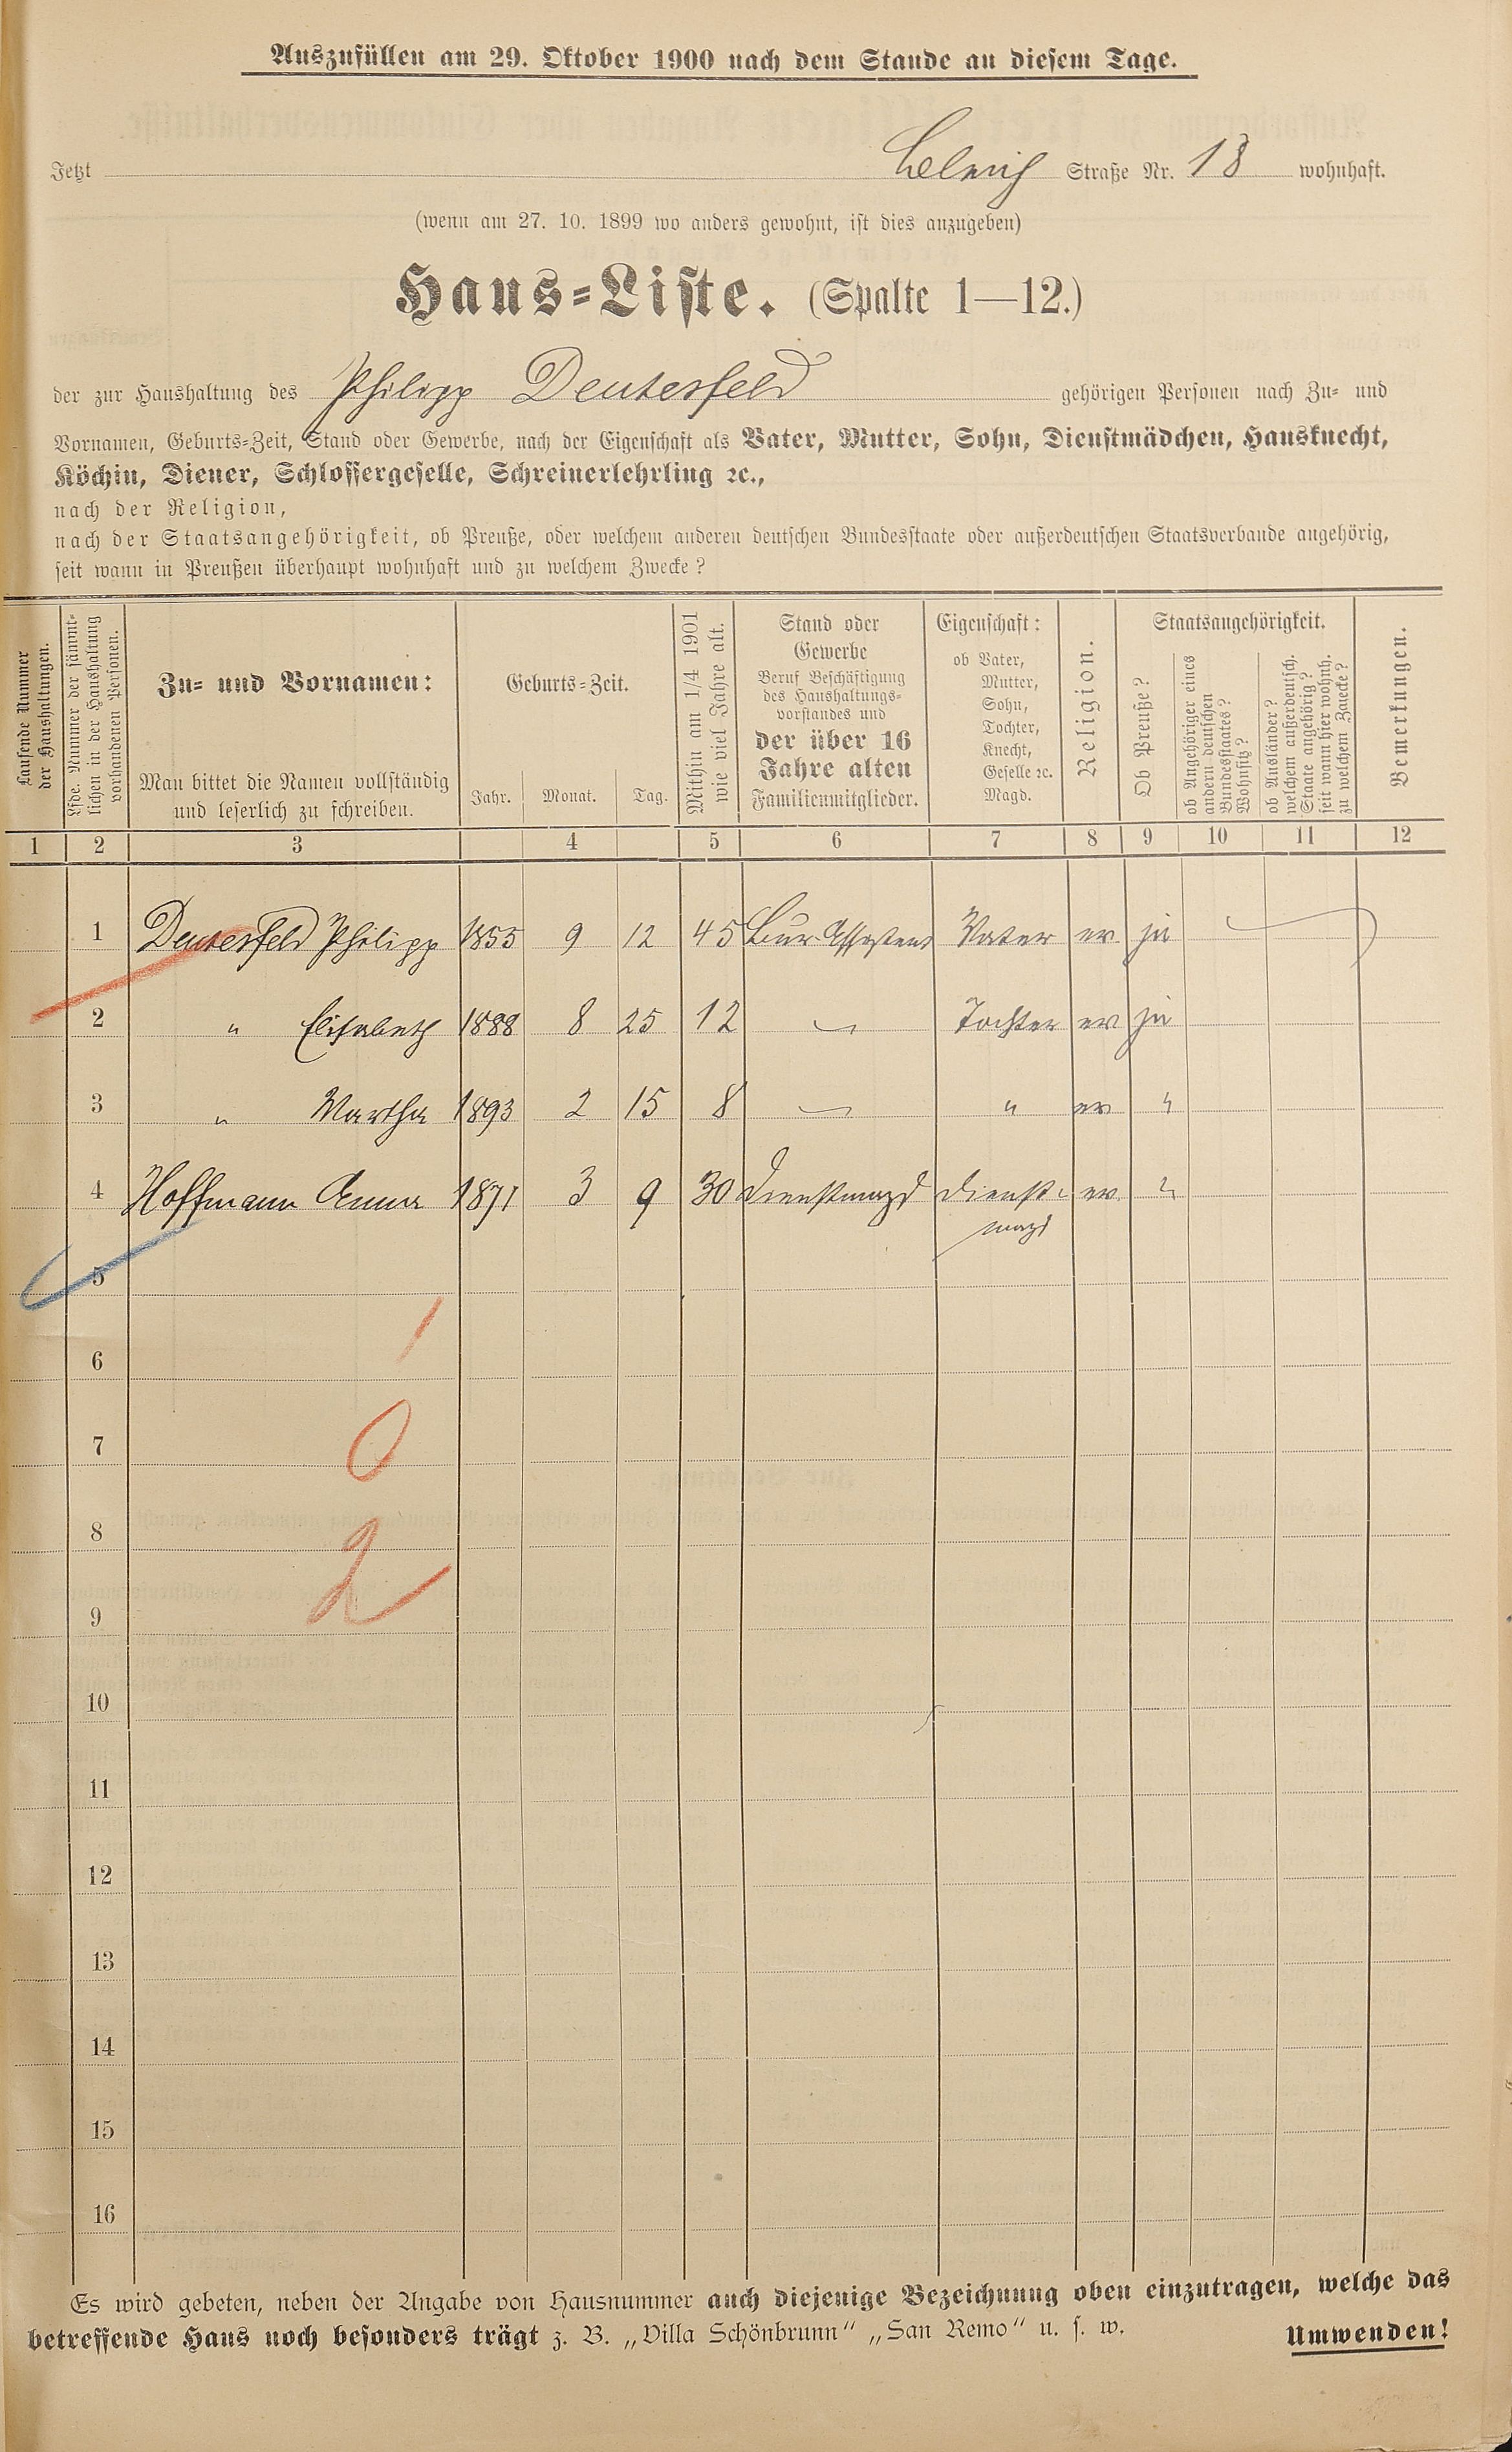 Auszufüllen am 29. Oktober 1900 nach dem Stande an diesem Tage.
Jetzt Straße Nr. 18 wohnhaft.
(wenn am 27. 10. 1899 wo anders gewohnt, ist dies anzugeben)
Haus-Liste. (Spalte 1—12.)
der zur Haushaltung des Philipp Deutesfeld gehörigen Personen nach Zu- und
Vornamen, Geburts-Zeit, Stand oder Gewerbe, nach der Eigenschaft als Vater, Mutter, Sohn, Dienstmädchen, Hausknecht,
Köchin, Diener, Schlossergeselle, Schreinerlehrling ꝛc.,
nach der Religion,
nach der Staatsangehörigkeit, ob Preuße, oder welchem anderen deutschen Bundesstaate oder außerdeutschen Staatsverbande angehörig,
seit wann in Preußen überhaupt wohnhaft und zu welchem Zwecke?
Laufende Nummer
der Haushaltungen.
Lfde. Nummer der sämmt-
lichen in der Haushaltung
vorhandenen Personen.
Zu- und Vornamen:
Man bittet die Namen vollständig
und leserlich zu schreiben.
Geburts-Zeit.
Jahr. Monat. Tag.
Mithin am 1/4 1901
wie viel Jahre alt.
Stand oder
Gewerbe
Beruf Beschäftigung
des Haushaltungs-
vorstandes und
der über 16
Jahre alten
Familienmitglieder.
Eigenschaft:
ob Vater,
Mutter,
Sohn,
Tochter,
Knecht,
Geselle ꝛc.
Magd.
Religion.
Staatsangehörigkeit.
Ob Preuße?
ob Angehöriger eines
andern deutschen
Bundesstaates?
Wohnsitz?
ob Ausländer?
welchem außerdeutsch.
Staate angehörig?
seit wann hier wohnh.
zu welchem Zwecke?
Bemerkungen.
1 2 3 4 5 6 7 8 9 10 11 12
1 Deutesfeld Philipp 1855 9 12 45 Bür. Assistent Vater ev ja
2 " Elisabeth 1888 8 25 12 — Tochter ev ja
3 " Martha 1893 2 15 8 — " ev "
4 Hoffmann Anna 1871 3 9 30 Dienstmagd Dienst-
magd ev. "
5
1
6
0
7
8
2
9
10
11
12
13
14
15
16
Es wird gebeten, neben der Angabe von Hausnummer auch diejenige Bezeichnung oben einzutragen, welche das
betreffende Haus noch besonders trägt z. B. „Villa Schönbrunn“ „San Remo“ u. s. w. Umwenden!